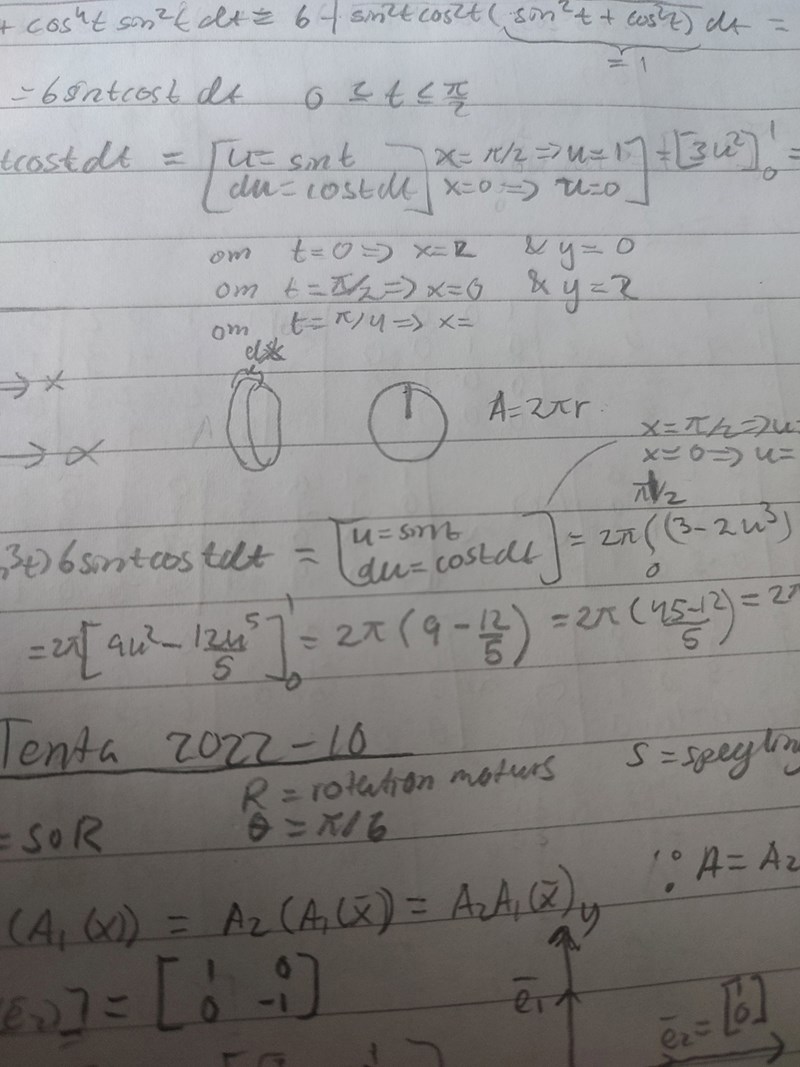 + cos⁴t sin²t dt = 6 √ sin²t cos²t (sin²t + cos²t) dt =
= 1
= 6 sint cost dt 0 ≤ t ≤ π/2
tcost dt = [u = sint du = cost dt] x = π/2 => u = 1 x = 0 => u = 0] = [3u²]₀¹ =
om t = 0 => x = 2 & y = 0
om t = π/2 => x = 0 & y = 2
om t = π/4 => x =
disk
→ x
A = 2πr
x = π/2 => u =
→ x
x = 0 => u =
³t) 6 sint cost dt = [u = sint du = cost dt] = 2π ∫₀^(π/2) (3 - 2u³)
= 2π [9u² - 12u⁵/5]₀¹ = 2π (9 - 12/5) = 2π (45-12/5) = 2π
Tenta 2022-10
R = rotation moturs S = spegling
= SoR θ = π/6
∴ A = A₂
(A₁(x)) = A₂(A₁(x̄)) = A₂A₁(x̄)
y
ē₂)] = [1 0 0 -1]
ē₁
ē₂ = [1 0]